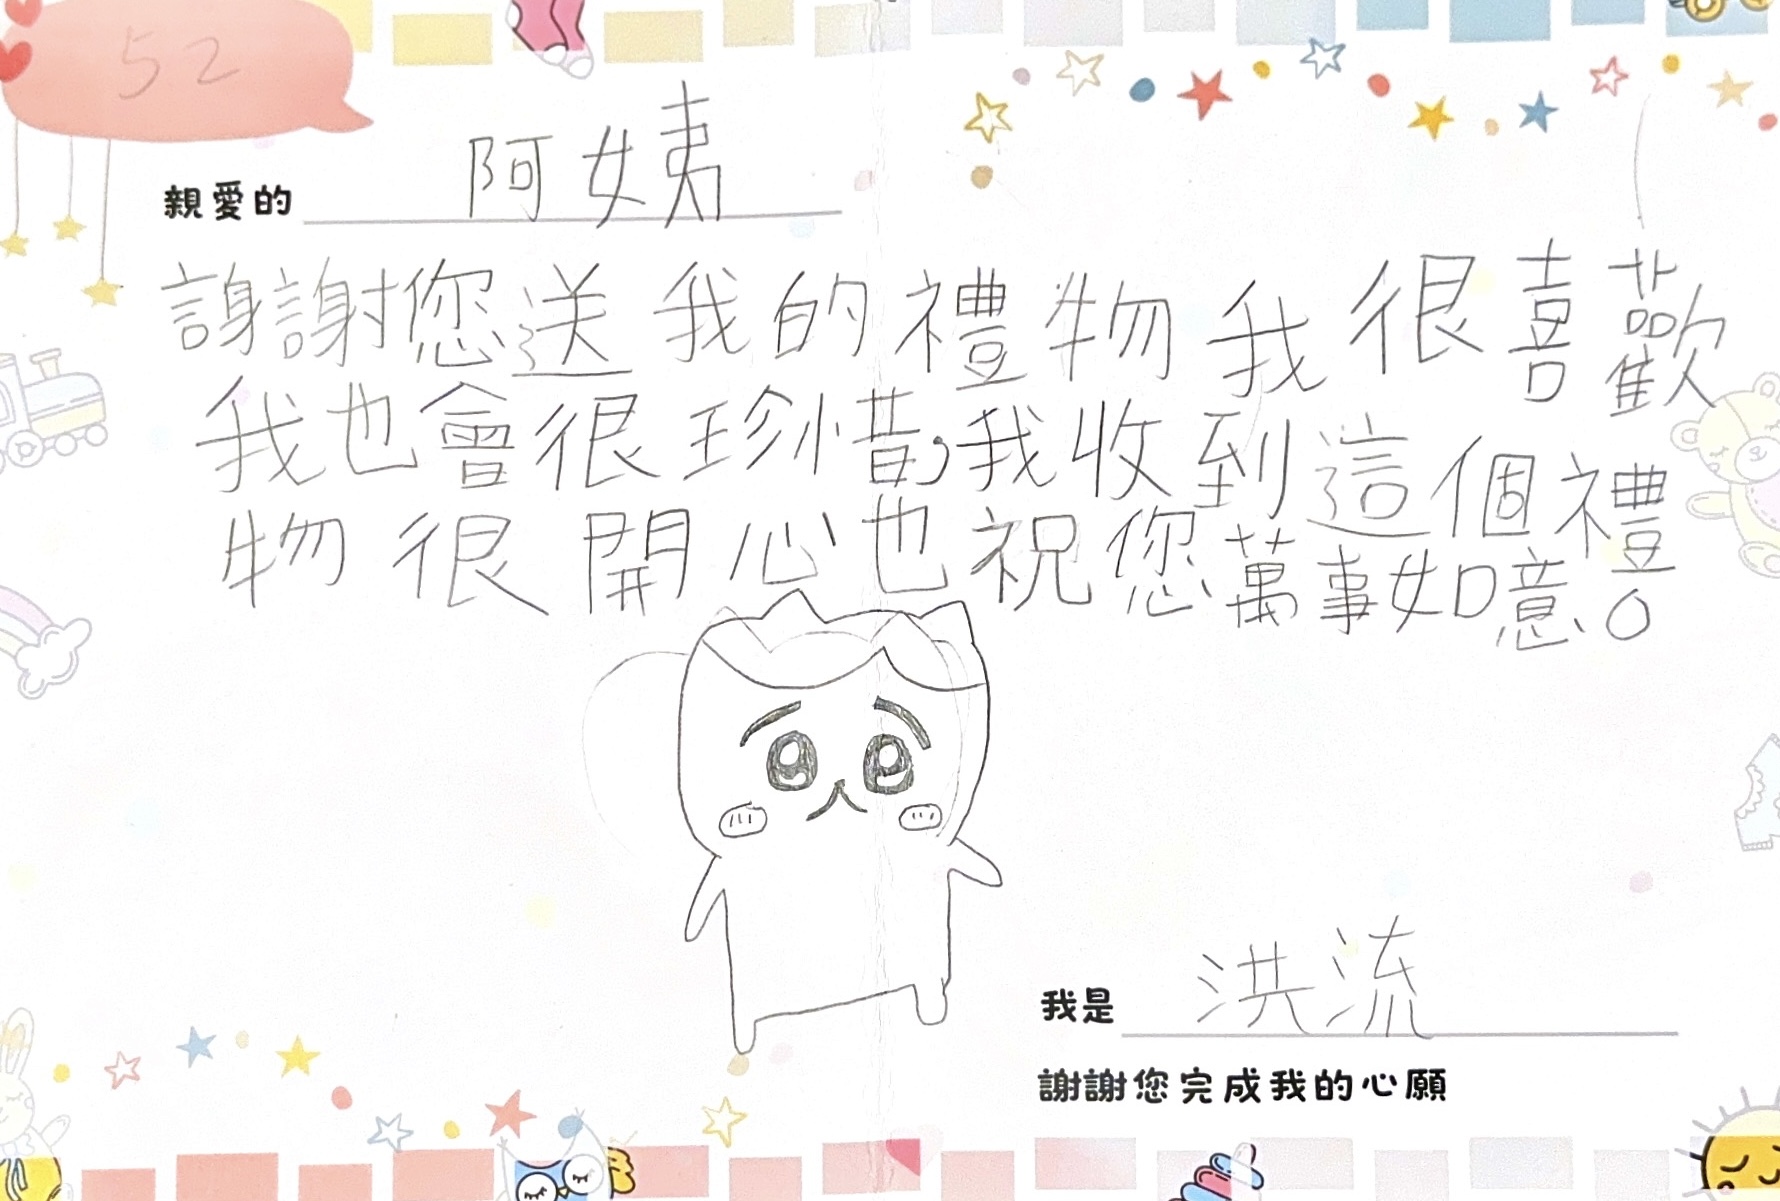 52
親愛的 阿姨
謝謝您送我的禮物我很喜歡
我也會很珍惜,我收到這個禮
物很開心也祝您萬事如意。
我是 洪流
謝謝您完成我的心願